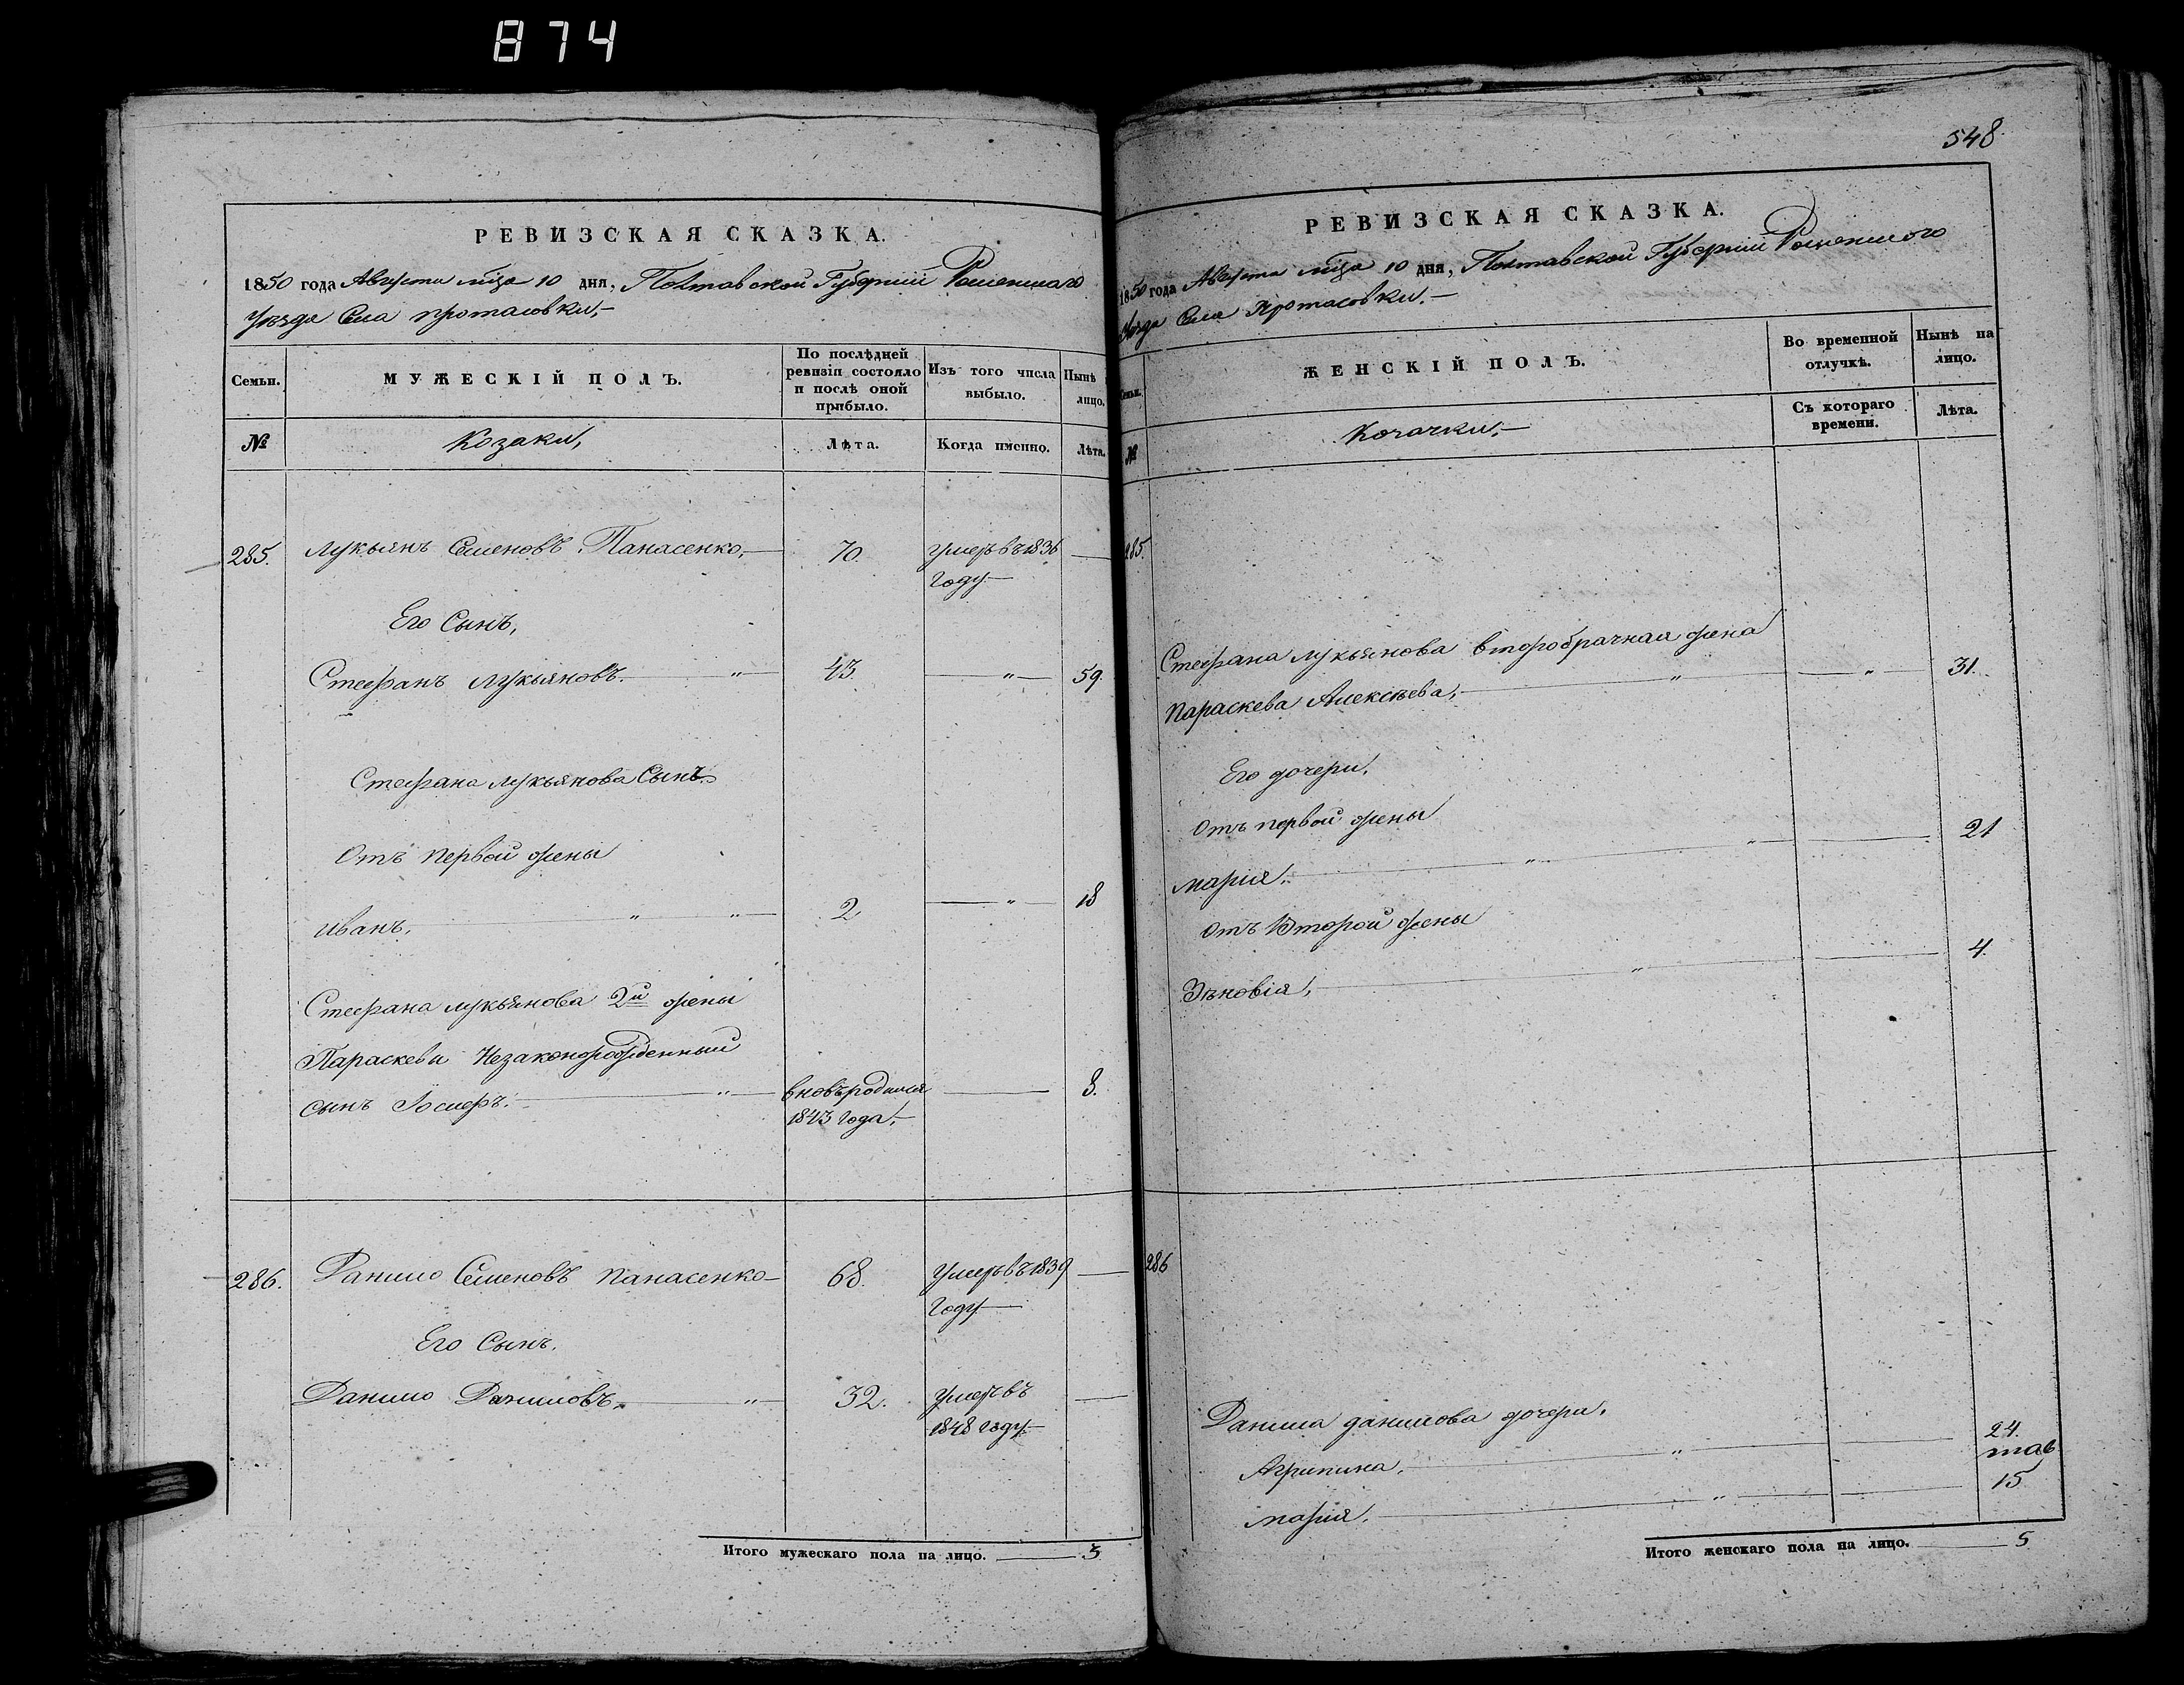 874
РЕВИЗСКАЯ СКАЗКА.
1850 года Августа м̃ца 10 дня, Полтавской Губерніи Роменского
Уѣзда Села протасовки,—
Семьи.
МУЖЕСКІЙ ПОЛЪ.
По послѣдней ревизіи состояло и послѣ оной прибыло.
Изъ того числа выбыло.
Нынѣ лицо.
№
Козаки,
Лѣта.
Когда именно.
Лѣта.
285. Лукьянъ Семеновъ Панасенко,— 70. умеръ въ 1836 —
Году—
Его Сынъ,
Стефанъ Лукьяновъ. — " — 43. — " — 59.
Стефана Лукьянова Сынъ
Отъ первой жены
Иванъ. " " — 2 — " — 18
Стефана Лукьянова 2й жены
Параскеви Незаконорожденный
сынъ Іосифъ. — " — вновь родился — 8.
1843 года,—
286. Данило Семеновъ Панасенко— 68. Умеръ въ 1839 —
Году—
Его Сынъ.
Данило Даниловъ. — " — 32. Умеръ въ —
1848 году—
Итого мужескаго пола на лицо. — 3
548
РЕВИЗСКАЯ СКАЗКА.
1850 года Августа м̃ца 10 дня, Полтавской Губерніи Роменского
Уѣзда Села Протасовки.—
Семьи.
ЖЕНСКІЙ ПОЛЪ.
Во временной отлучкѣ.
Нынѣ на лицо.
№
Козачки,—
Съ котораго времени.
Лѣта.
285.
Стефана Лукьянова второбрачная жена
Параскева Алексѣева, — " — " — 31.
Его дочери,
Отъ первой жены
Марія. — " — " — 21
Отъ Второй жены
Зѣновія, — " — 4.
286
Данила Данилова дочери.
Агрипина. — " — 24.
Марія. — " — 15
Итого женскаго пола на лицо. — 5